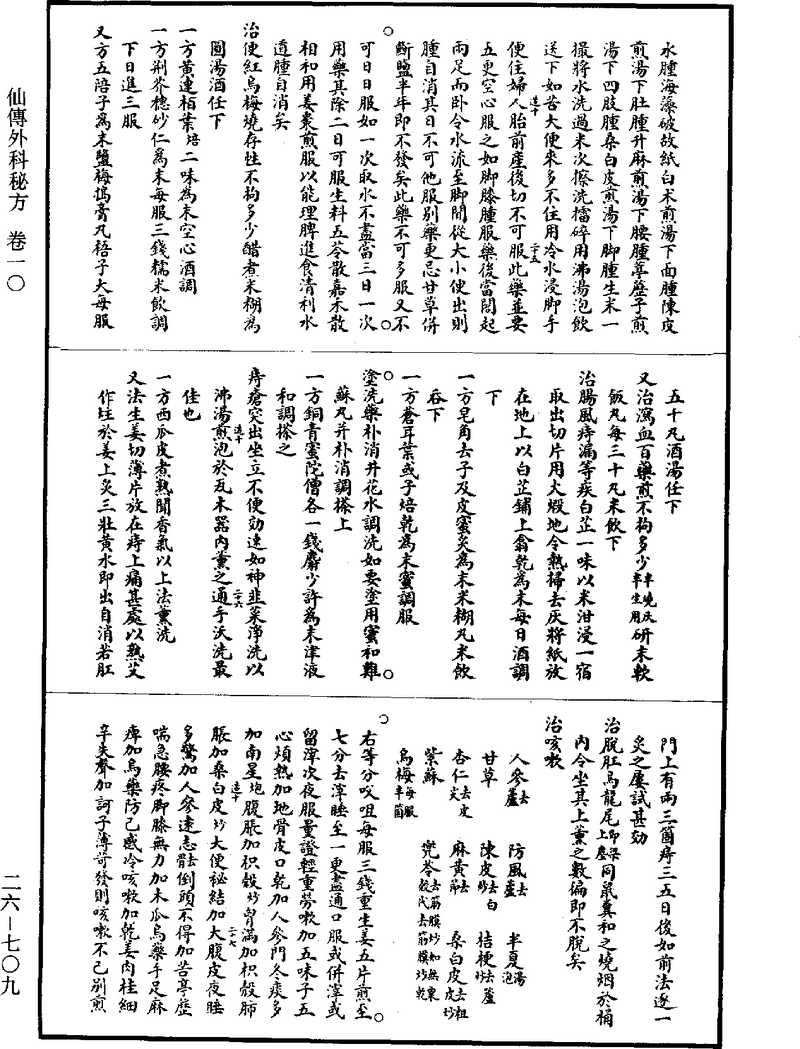 仙傳外科秘方　卷一〇
水腫海藻破故紙白术煎湯下面腫陳皮
煎湯下肚腫升麻煎湯下腰腫葶藶子煎
湯下四肢腫桑白皮煎湯下脚腫生米一
撮將水洗過米次擦洗擂碎用沸湯泡飲
送下如苦大便來多不住用冷水浸脚手
便住婦人胎前產後切不可服此藥並要
五更空心服之如脚膝腫服藥後當閣起
兩足而卧令水流至脚間從大小便出則
腫自消其日不可他服別藥更忌甘草併
斷鹽半年即不發矣此藥不可多服又不
可日日服如一次取水不盡當三日一次
用藥其除二日可服生料五苓散嘉禾散
相和用姜棗煎服以能理脾進食清利水
道腫自消矣
治便紅烏梅燒存性不拘多少醋煮米糊為
圓湯酒任下
一方黃連栢葉焙二味為末空心酒調
一方荆芥槵砂仁為末每服三錢糯米飲調
下日進三服
又方五陪子為末鹽梅搗膏丸梧子大每服
五十丸酒湯任下
又治瀉血百藥煎不拘多少半燒灰半生用研末軟
飯丸每三十丸米飲下
治腸風痔漏等疾白芷一味以米泔浸一宿
取出切片用火煅地令熱掃去灰將紙放
在地上以白芷鋪上翕乾為末每日酒調
下
一方皂角去子及皮蜜炙為末米糊丸米飲
吞下
一方蒼耳葉或子焙乾為末蜜調服
塗洗藥朴消井花水調洗如要塗用蜜和雞
蘇丸并朴消調搽上
一方銅青蜜陀僧各一錢麝少許為末津液
和調搽之
痔瘡突出坐立不便効速如神韭菜淨洗以
沸湯煎泡於瓦木器內薰之通手沃洗最
佳也
一方西瓜皮煮熟聞香氣以上法薰洗
又法生姜切薄片放在痔上痛甚處以熟艾
作炷於姜上炙三壯黃水即出自消若肛
門上有兩三箇痔三五日後如前法逐一
炙之屢試甚効
治脫肛烏龍尾即梁上塵同鼠糞和之燒烟於桶
內令坐其上薰之數徧即不脫矣
治咳嗽
人參去蘆　防風去蘆　半夏湯泡
甘草　陳皮去白　桔梗去蘆
杏仁去皮尖　麻黃去節　桑白皮去粗皮炒
紫蘇
烏梅每服半箇
右等分㕮咀每服三錢重生姜五片煎至
七分去滓睡至一更盡通口服或併滓或
留滓次夜服量證輕重勞嗽加五味子五
心煩熱加地骨皮口乾加人參門冬痰多
加南星炮腹脹加枳殼炒胷滿加枳殼肺
脹加桑白皮炒大便秘結加大腹皮夜睡
多驚加人參遠志去骷倒頭不得加苦葶歷
喘急腰疼脚膝無力加木瓜烏藥手足麻
痺加烏藥防己感冷咳嗽加乾姜肉桂細
辛失聲加訶子薄荷發則咳嗽不已別煎
二六—七〇九